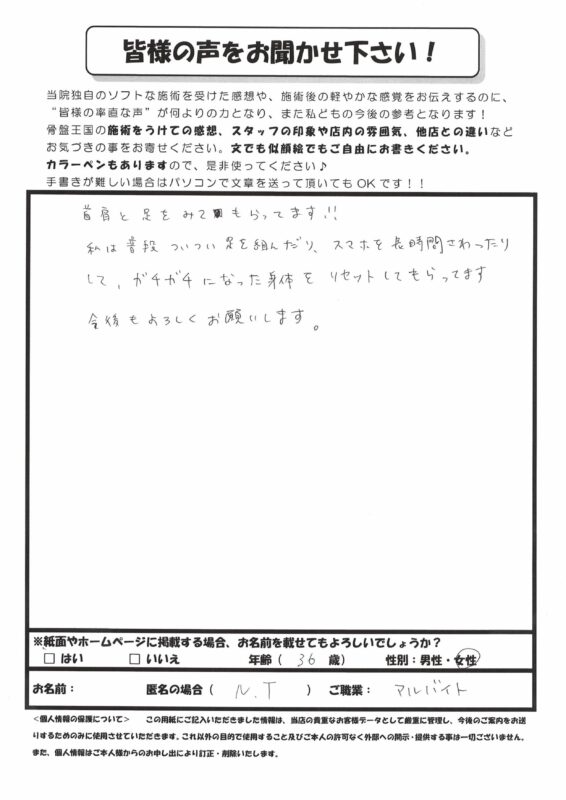 皆様の声をお聞かせ下さい！
当院独自のソフトな施術を受けた感想や、施術後の軽やかな感覚をお伝えするのに、
“皆様の率直な声”が何よりの力となり、また私どもの今後の参考となります！
骨盤王国の施術をうけての感想、スタッフの印象や店内の雰囲気、他店との違いなど
お気づきの事をお寄せください。文でも似顔絵でもご自由にお書きください。
カラーペンもありますので、是非使ってください♪
手書きが難しい場合はパソコンで文章を送って頂いてもOKです！！
首肩と足をみてもらってます!!
私は普段ついつい足を組んだり、スマホを長時間さわったり
して、ガチガチになった身体をリセットしてもらってます
今後もよろしくお願いします。
※紙面やホームページに掲載する場合、お名前を載せてもよろしいでしょうか？
□はい　□いいえ　年齢（ 36 歳）　性別：男性・女性
お名前：　匿名の場合（ N.T ）ご職業： アルバイト
＜個人情報の保護について＞　この用紙にご記入いただきました情報は、当店の貴重なお客様データとして厳重に管理し、今後のご案内をお送
りするためのみに使用させていただきます。これ以外の目的で使用すること及びご本人の許可なく外部への開示・提供する事は一切ございません。
また、個人情報はご本人様からのお申し出により訂正・削除いたします。